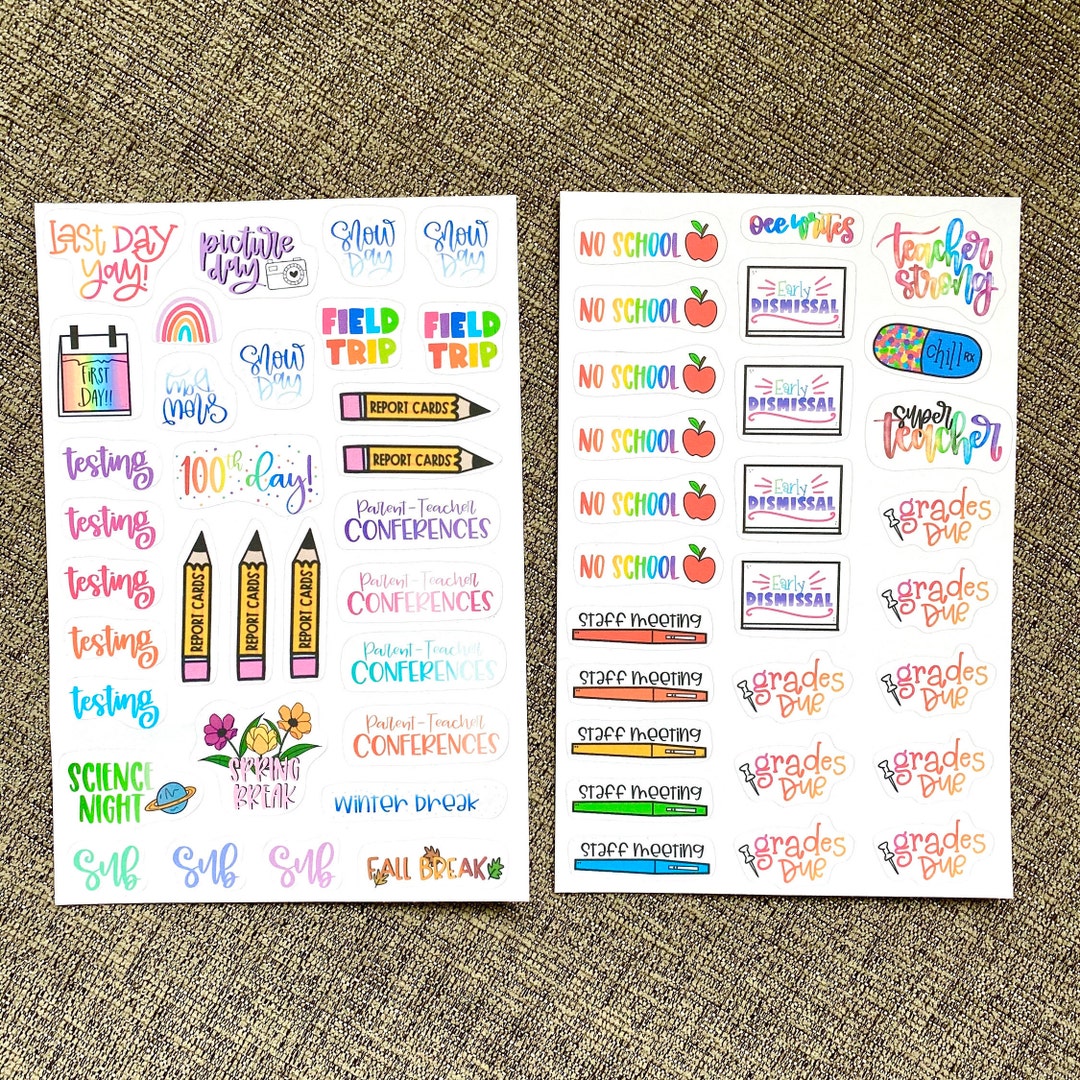 Last Day
yay!
picture
day
Snow
Day
Snow
Day
FIRST
DAY!!
Snow
Day
Snow
Day
FIELD
TRIP
FIELD
TRIP
REPORT CARDS
REPORT CARDS
testing
100th day!
testing
testing
testing
testing
REPORT CARDS
REPORT CARDS
REPORT CARDS
Parent-Teacher
CONFERENCES
Parent-Teacher
CONFERENCES
Parent-Teacher
CONFERENCES
Parent-Teacher
CONFERENCES
SCIENCE
NIGHT
SPRING
BREAK
winter break
Sub
Sub
Sub
FALL BREAK
NO SCHOOL
NO SCHOOL
NO SCHOOL
NO SCHOOL
NO SCHOOL
NO SCHOOL
staff meeting
staff meeting
staff meeting
staff meeting
staff meeting
cee writes
Early
DISMISSAL
Early
DISMISSAL
Early
DISMISSAL
Early
DISMISSAL
teacher
strong
chill RX
super
teacher
grades
Due
grades
Due
grades
Due
grades
Due
grades
Due
grades
Due
grades
Due
grades
Due